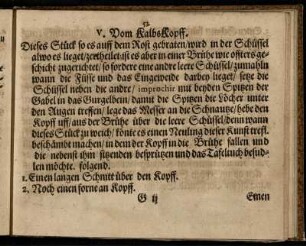 52
V. Vom KalbsKopff.
Dieses Stück so es auff dem Rost gebraten/wird in der Schüssel
alwo es lieget/zertheilet: ist es aber in einer Brühe wie offters ge-
schicht zugerichtet/ so fordere eine andre leere Schüssel/zumahln
wann die Füsse und das Eingeweide darbey lieget/ setze die
Schüssel neben die andre/ improchir mit beyden Spitzen der
Gabel in das Gurgelbein/ damit die Spitzen die Löcher unter
den Augen treffen/ lege das Messer an die Schnautze/ hebe den
Kopff uff/ aus der Brühe über die leere Schüssel/denn wann
dieses Stück zu weich/ könte es einen Neuling dieser Kunst treffl.
beschämbt machen/ in dem der Kopff in die Brühe fallen und
die nebenst ihm sitzenden besprützen und das Tafeltuch besud-
len möchte. folgend.
1. Einen langen Schnitt über den Kopff.
2. Noch einen forne an Kopff.
G ij Einen